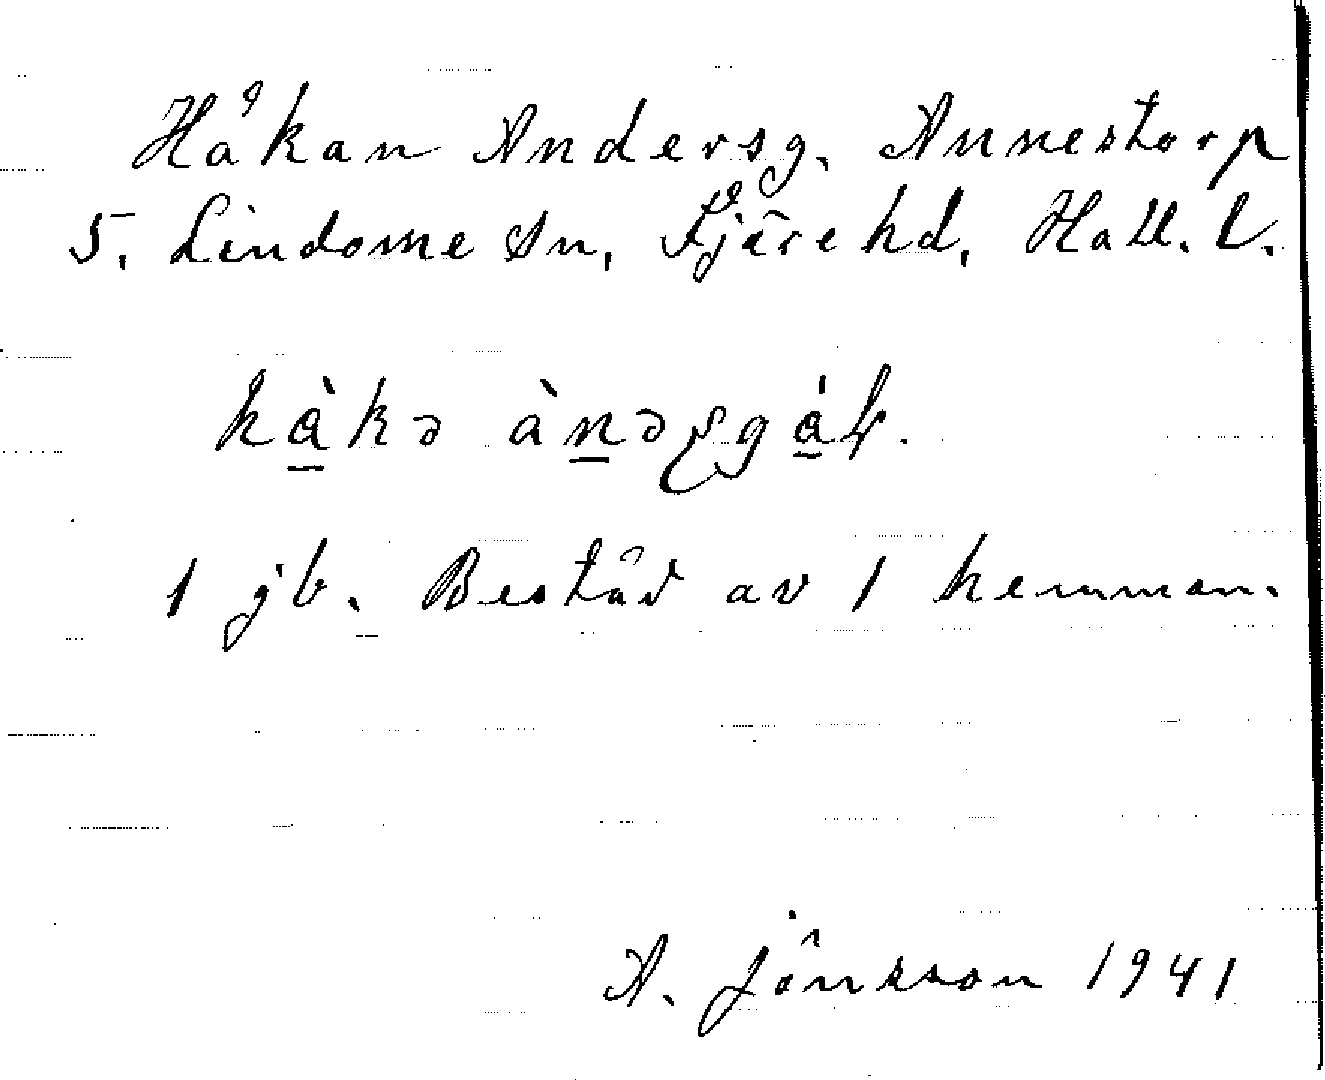 Håkan Andersg. Annestorp
5, Lindome sn, Fjäre hd, Hall. l.
1 jb. Bestod av 1 hemman.
A. Jönsson 1941